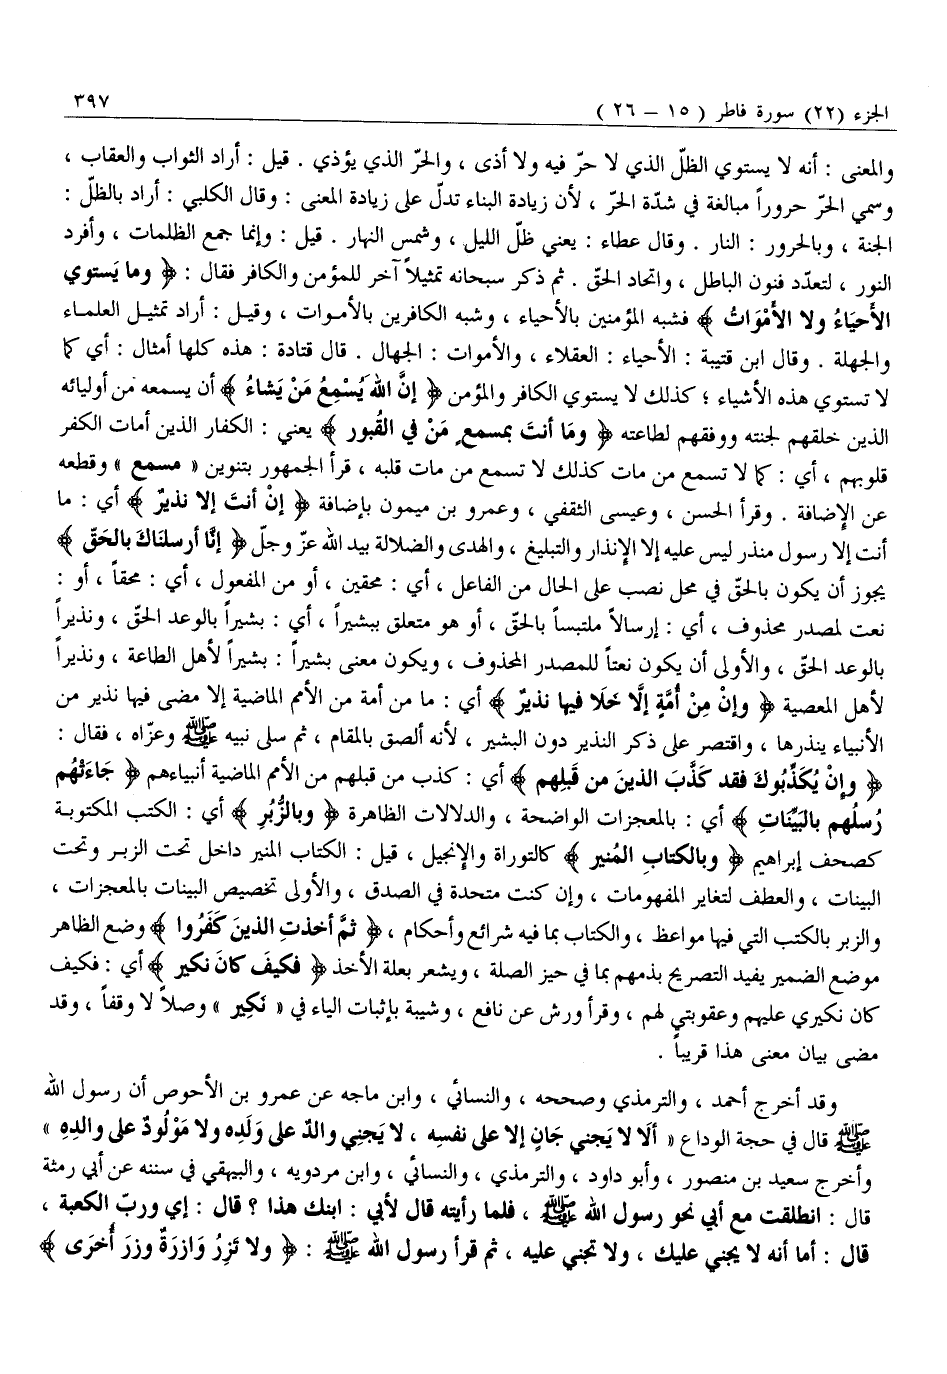 الجزء (٢٢) سورة فاطر ( ١٥ – ٢٦ ) ٣٩٧
والمعنى : أنه لا يستوي الظلّ الذي لا حرّ فيه ولا أذى ، والحرّ الذي يؤذي . قيل : أراد الثواب والعقاب ،
وسمي الحرّ حروراً مبالغة في شدّة الحرّ ، لأن زيادة البناء تدلّ على زيادة المعنى : وقال الكلبي : أراد بالظلّ :
الجنة ، وبالحرور : النار . وقال عطاء : يعني ظلّ الليل ، وشمس النهار . قيل : وإنما جمع الظلمات ، وأفرد
النور ، لتعدّد فنون الباطل ، واتحاد الحقّ . ثم ذكر سبحانه تمثيلاً آخر للمؤمن والكافر فقال : ﴿ وما يَستوي
الأَحيَاءُ ولا الأَمْوَاتُ ﴾ فشبه المؤمنين بالأحياء ، وشبه الكافرين بالأموات ، وقيل : أراد تمثيل العلماء
والجهلة . وقال ابن قتيبة : الأحياء : العقلاء ، والأموات : الجهال . قال قتادة : هذه كلها أمثال : أي كما
لا تستوي هذه الأشياء ؛ كذلك لا يستوي الكافر والمؤمن ﴿ إنَّ اللَّهَ يُسْمِعُ مَنْ يَشاءُ ﴾ أن يسمعه من أوليائه
الذين خلقهم لجنته ووفقهم لطاعته ﴿ ومَا أنتَ بمسمعٍ مَنْ في القُبور ﴾ يعني : الكفار الذين أمات الكفر
قلوبهم ، أي : كما لا تسمع من مات كذلك لا تسمع من مات قلبه ، قرأ الجمهور بتنوين « مسمع » وقطعه
عن الإضافة . وقرأ الحسن ، وعيسى الثقفي ، وعمرو بن ميمون بإضافة ﴿ إنْ أنتَ إلا نذيرٌ ﴾ أي : ما
أنت إلا رسول منذر ليس عليه إلا الإنذار والتبليغ ، والهدى والضلالة بيد الله عزّ وجلّ ﴿ إنَّا أرسلنَاكَ بالحَقّ ﴾
يجوز أن يكون بالحقّ في محل نصب على الحال من الفاعل ، أي : محقين ، أو من المفعول ، أي : محقاً ، أو :
نعت لمصدر محذوف ، أي : إرسالاً ملتبساً بالحقّ ، أو هو متعلق ببشيراً ، أي : بشيراً بالوعد الحقّ ، ونذيراً
بالوعد الحقّ ، والأولى أن يكون نعتاً للمصدر المحذوف ، ويكون معنى بشيراً : بشيراً لأهل الطاعة ، ونذيراً
لأهل المعصية ﴿ وإنْ مِنْ أُمَّةٍ إلَّا خَلَا فيها نذيرٌ ﴾ أي : ما من أمة من الأمم الماضية إلا مضى فيها نذير من
الأنبياء ينذرها ، واقتصر على ذكر النذير دون البشير ، لأنه ألصق بالمقام ، ثم سلى نبيه ﷺ وعزّاه ، فقال :
﴿ وإنْ يُكَذِّبُوكَ فقد كَذَّبَ الذينَ من قَبلِهم ﴾ أي : كذب من قبلهم من الأمم الماضية أنبياءهم ﴿ جَاءَتْهُم
رُسلُهم بالبَيِّنَاتِ ﴾ أي : بالمعجزات الواضحة ، والدلالات الظاهرة ﴿ وبالزُّبُرِ ﴾ أي : الكتب المكتوبة
كصحف إبراهيم ﴿ وبالكتابِ المُنير ﴾ كالتوراة والإنجيل ، قيل : الكتاب المنير داخل تحت الزبر وتحت
البينات ، والعطف لتغاير المفهومات ، وإن كنت متحدة في الصدق ، والأولى تخصيص البينات بالمعجزات ،
والزبر بالكتب التي فيها مواعظ ، والكتاب بما فيه شرائع وأحكام ، ﴿ ثمَّ أخذتِ الذينَ كَفَرُوا ﴾ وضع الظاهر
موضع الضمير يفيد التصريح بذمهم بما في حيز الصلة ، ويشعر بعلة الأخذ ﴿ فكيفَ كانَ نكير ﴾ أي : فكيف
كان نكيري عليهم وعقوبتي لهم ، وقرأ ورش عن نافع ، وشيبة بإثبات الياء في « نَكِير » وصلاً لا وقفاً ، وقد
مضى بيان معنى هذا قريباً .
وقد أخرج أحمد ، والترمذي وصححه ، والنسائي ، وابن ماجه عن عمرو بن الأحوص أن رسول الله
ﷺ قال في حجة الوداع « ألَا لا يَجني جَانٍ إلا على نفسِه ، لا يَجنِي والدٌ على وَلَدِه ولا مَوْلُودٌ على والدِهِ »
وأخرج سعيد بن منصور ، وأبو داود ، والترمذي ، والنسائي ، وابن مردويه ، والبيهقي في سننه عن أبي رمثة
قال : انطلقت مع أبي نحو رسول الله ﷺ ، فلما رأيته قال لأبي : ابنك هذا ؟ قال : إي وربّ الكعبة ،
قال : أما أنه لا يجني عليك ، ولا تجني عليه ، ثم قرأ رسول الله ﷺ : ﴿ ولا تَزِرُ وَازرَةٌ وِزرَ أُخرَى ﴾